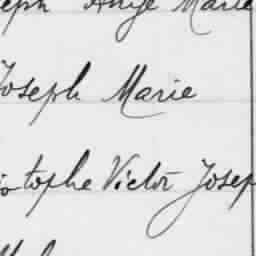 eph Ange Marie
Joseph Marie
istophe Victor Josep